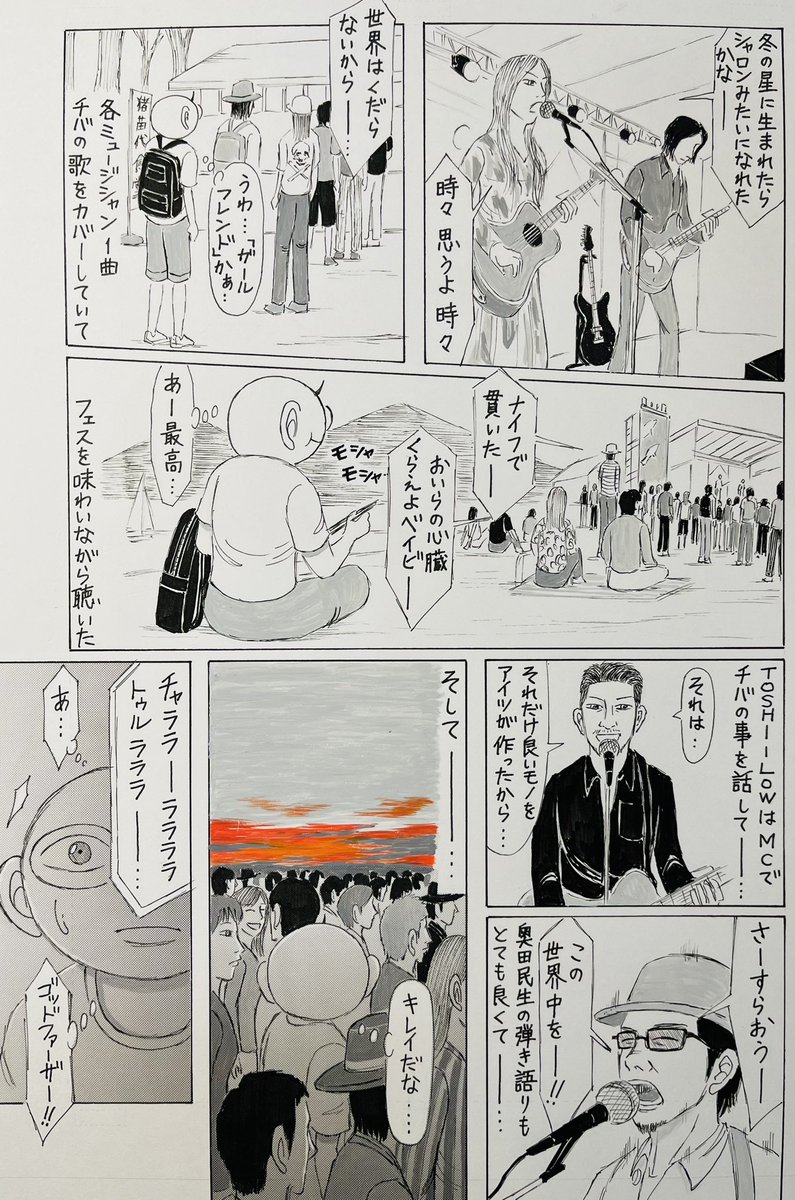 冬の星に生まれたら
シャロンみたいになれた
かなー
時々思うよ 時々
世界はくだら
ないからー…
猪苗代
うわ…「ガール
フレンド」かぁ…
各ミュージシャン1曲
チバの歌をカバーしていて
ナイフで
貫いたー
おいらの心臓
くらえよベイビー
モシャ
モシャ
あー最高…
フェスを味わいながら聴いた
TOSHI-LOWはMCで
チバの事を話してー…
それは…
それだけ良いモノを
アイツが作ったから…
さーすらおうー
この
世界中をー!!
奥田民生の弾き語りも
とても良くてー…
そしてー…
キレイだな…
チャララーラララ
トゥルラララー…
あ…
ゴッドファーザー!!